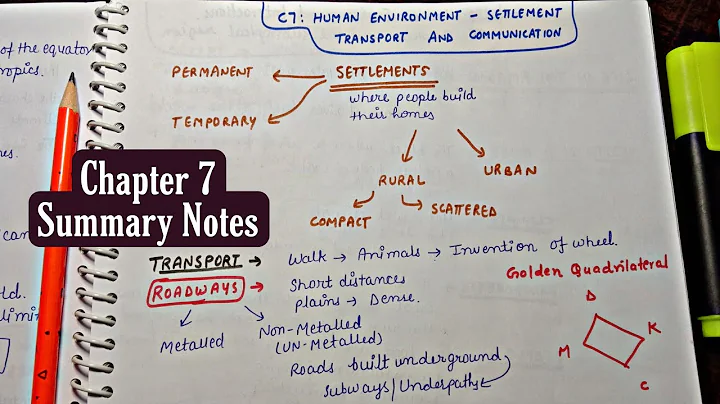 C7: HUMAN ENVIRONMENT – SETTLEMENT
TRANSPORT AND COMMUNICATION
of the equator
ropics.
PERMANENT
SETTLEMENTS
TEMPORARY
where people build
their homes
RURAL
URBAN
COMPACT
SCATTERED
Chapter 7
Summary Notes
TRANSPORT → Walk → Animals → Invention of wheel.
ROADWAYS → Short distances
plains → Dense.
Golden Quadrilateral
D
K
M
C
Metalled
Non-Metalled
(UN-Metalled)
Roads built underground
Subways/Underpaths
can